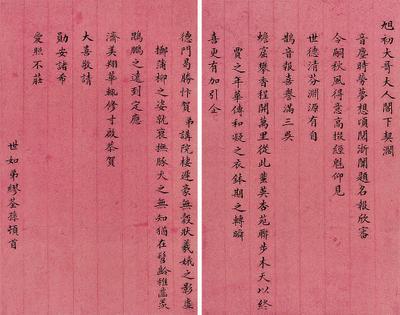 旭初大哥大人閣下契濶
音塵時縈夢想頃閱浙闈題名報欣審
令嗣秋風得意高掇經魁仰見
世德清芬淵源有自
鵲音報喜譽滿三吳
蟾窟攀香程開萬里從此蜚英杏苑聯步木天以終
賈之年華傳和凝之衣鉢期之轉瞬
喜更有加引企
德門曷勝忭賀弟講院棲遲豪無穀狀羲娥之影虛
擲蒲柳之姿就衰撫豚犬之無知猶在髫齡稚齒羨
鵬之遠到定應
濟美翔華輒修寸啟恭賀
大喜敬請
勛安諸希
愛照不莊
世如弟繆荃孫頓首